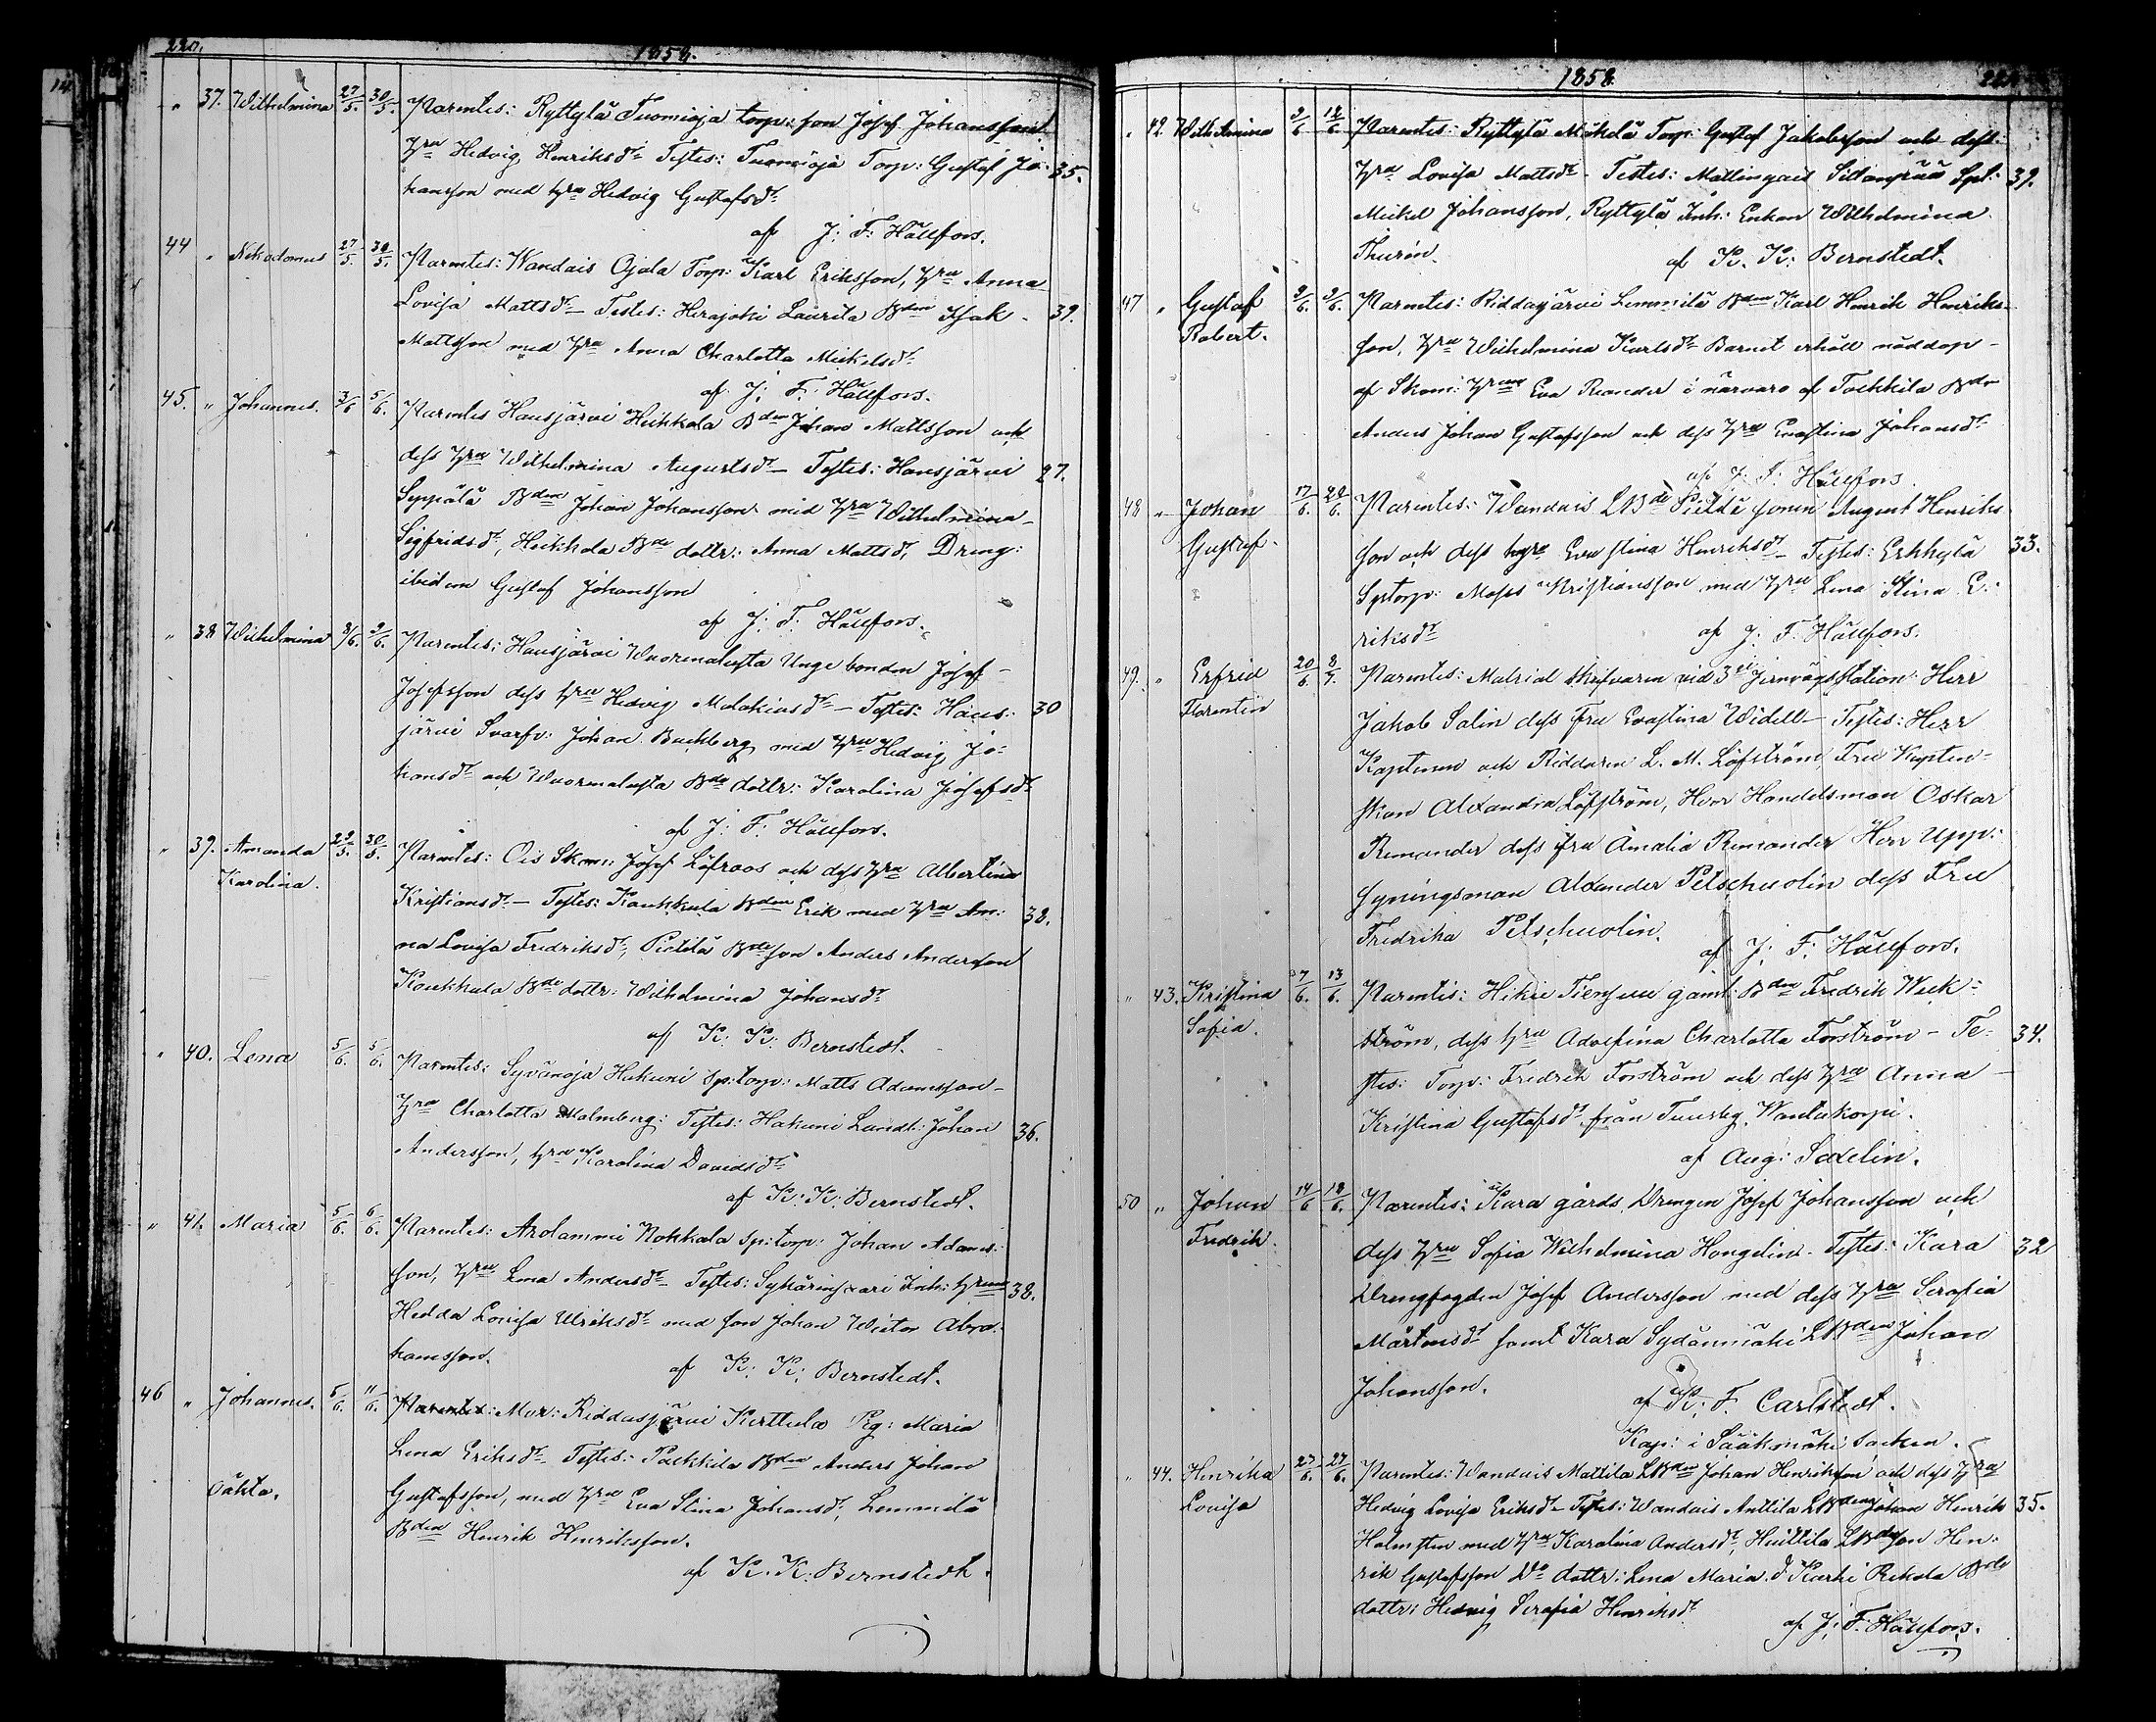 220.
1858.
" 37. Wilhelmina 27/5. 30/5. Parentes: Ryttylä Tuomioja torp: son Josef Johansson
Hru Hedvig Henriksdr Testes: Tuomioja Torp: Gustaf Jo- 35.
hansson med hru Hedvig Gustafsdr
af J: F: Hällfors.
44 " Nikodemus 27/5. 30/5. Parentes: Wandais Ojala Torp: Karl Eriksson, Hru Anna
Lovisa Mattsdr Testes: Herajoki Laurila Bden Isak 39.
Mattsson med Hru Anna Charlotta Mickelsdr
af J: F: Hällfors.
45. " Johannes. 3/6 5/6. Parentes Hausjärvi Heikkola Bden Johan Mattsson och
dess Hru Wilhelmina Augustsdr Testes: Hausjärvi 27.
Seppälä Bden Johan Johansson med Hru Wilhelmina
Sigfridsdr, Heikkola Bde dottr: Anna Mattsdr, Dreng:
ibidem Gustaf Johansson
af J: F: Hällfors.
" 38 Wilhelmina 3/6. Parentes: Hausjärvi Wuorenalusta Unge bonden Josef
Josefsson dess hru Hedvig Malakiasdr Testes: Haus- 30
järvi Svarfv: Johan Buckberg med Hru Hedvig Jo-
hansdr och Wuorenalusta Bde dottr: Karolina Josefsdr
af J: F: Hällfors.
" 39. Amanda 29/5. 30/5. Parentes: Ois Skom: Josef Löfroos och dess Hru Albertina
Karolina. Kristiansdr Testes: Kaukkala Bden Erik med Hru An- 38.
na Lovisa Fredriksdr, Pietilä Bdeson Anders Andersson
Kaukkala Bde dottr: Wilhelmina Johansdr
af K: K: Bernstedt.
" 40. Lena 5/6. 5/6. Parentes: Syvänoja Hakuni Sp:torp: Matts Adamsson
Hru Charlotta Malmberg: Testes: Hakuni Landb: Johan 36.
Andersson, hru Karolina Davidsdr
af K: K: Bernstedt.
" 41. Maria 5/6. 6/6. Parentes: Arolammi Nokkala Sp:torp: Johan Adams-
son, Hru Lena Andersdr Testes: Inh: hrum 38.
Hedda Lovisa Ulriksdr med son Johan Wictor Abra-
hamsson.
af K: K: Bernstedt.
46 " Johannes. 5/6. 11/6. Parentes: Mor: Riddasjärvi Kerttula Pig: Maria
Lena Eriksdr Testes: Pachkila Bden Anders Johan
oäkta. Gustafsson, med Hru Eva Stina Johansdr, Lemmilä
Bden Henrik Henriksson.
af K. K: Bernstedt.
1858.
" 42 Wilhelmina 12/6 Parentes: Ryttylä Mikola Torp: Gustaf Jakobsson och dess
Hru Lovisa Mattsdr Testes: Spl: 39.
Mickel Johansson, Ryttylä Inh: Enkan Wilhelmina
Thurén.
af K. K: Bernstedt.
47 " Gustaf 9/6. 9/6. Parentes: Riddasjärvi Lemmilä Bden Karl Henrik Henriks-
Robert. son, Hru Wilhelmina Karlsdr Barnet erhöll nöddop
af Skom: Hrun Eva Reander i närvaro af Bden
Anders Johan Gustafsson och dess Hru Evastina Johansdr
af J: F: Hällfors.
48 " Johan 17/6. 20/6. Parentes: Wandais LBde Pietilä sonen August Henriks-
Gustaf. son och dess hru Eva Stina Henriksdr Testes: Erkkylä 33.
Sptorp: Moses Kristiansson med Hru Lena Stina E-
riksdr
af J: F: Hällfors.
49. " Erfrid 20/6. 8/7. Parentes: Matrial skrifvaren vid 3de Jernvägsstation: Herr
Florentin Jakob Salin dess Fru Evastina Widell Testes: Herr
Kaptenen och Riddaren L. M. Löfström, Fru Kapten-
skan Alexandra Löfström, Herr Handelsman Oskar
Remander dess fru Amalia Remander Herr Upp-
syningsman Alexander Petschuolin dess Fru
Fredrika Petschuolin.
af J: F: Hällfors.
" 43. Kristina 7/6. 13/6. Parentes: Hikie Tiensuu gamla Bden Fredrik Weck-
Sofia. ström, dess hru Adolfina Charlotta Forström Te- 34.
stes: Torp: Fredrik Forström och dess Hru Anna
Kristina Gustafsdr från Tuusby, Wantakorpi.
af Aug: Sadelin.
50 " Johan 14/6 18/6. Parentes: Kara gårds Drengen Josef Johansson och
Fredrik. dess Hru Sofia Wilhelmina Hongelin. Testes: Kara 32
Drengfogden Josef Andersson med dess Hru Serafia
Mårtensdr samt Kara Sydänmäki LBden Johan
Johansson.
af K: F. Carlstedt.
Kap: i Sääksmäki socken.
" 44. Henrika 27/6. 27/6. Parentes: Wandais Mattila LBden Johan Henriksson och dess Hru
Lovisa Hedvig Lovisa Eriksdr Testes: Wandais Anttila LBden Johan Henrik 35.
Holmsten med Hru Karolina Andersdr, Huittila LBdeson Hen-
rik Gustafsson Do dottr: Lena Maria d. Karhi Rekola Bde
dottr: Hedvig Serafia Henriksdr
af J: F: Hällfors.